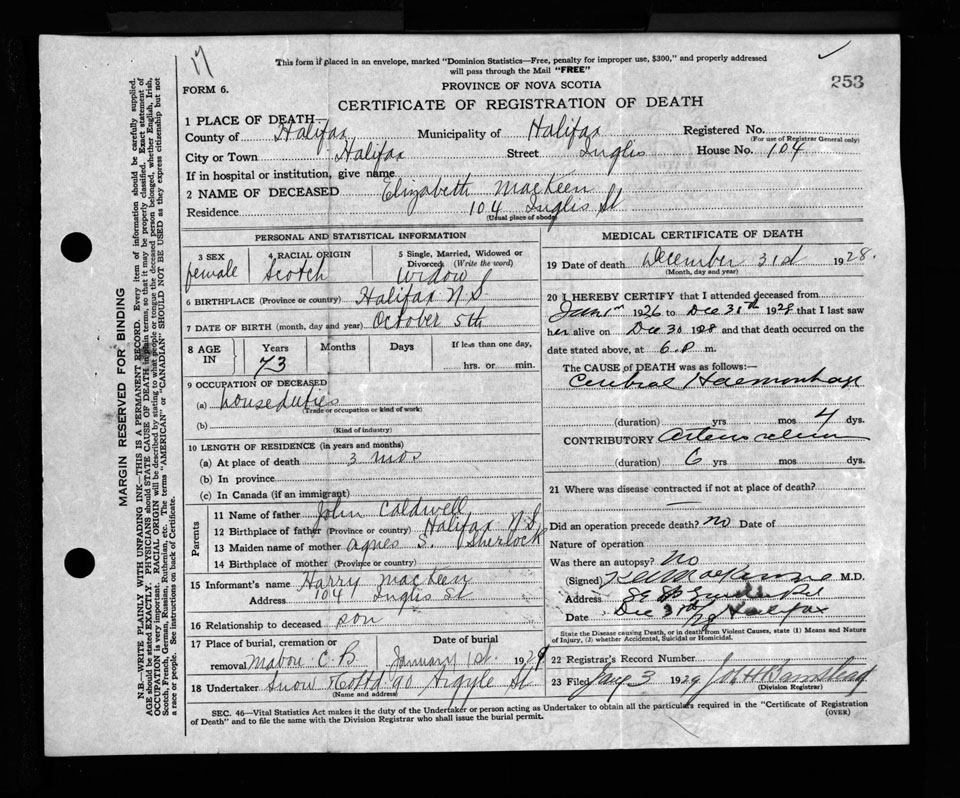 17
This form if placed in an envelope, marked "Dominion Statistics—Free, penalty for improper use, $300," and properly addressed
will pass through the Mail "FREE"
253
FORM 6.
PROVINCE OF NOVA SCOTIA
CERTIFICATE OF REGISTRATION OF DEATH
1 PLACE OF DEATH
County of Halifax Municipality of Halifax Registered No.
(For use of Registrar General only)
City or Town Halifax Street Inglis House No. 104
If in hospital or institution, give name
2 NAME OF DECEASED Elizabeth MacKeen
Residence 104 Inglis St
(Usual place of abode)
PERSONAL AND STATISTICAL INFORMATION
3 SEX female
4 RACIAL ORIGIN Scotch
5 Single, Married, Widowed or
Divorced (Write the word)
Widow
6 BIRTHPLACE (Province or country) Halifax N S
7 DATE OF BIRTH (month, day and year) October 5th
8 AGE IN Years 73 Months Days If less than one day,
hrs. or min.
9 OCCUPATION OF DECEASED
(a) houseduties
(Trade or occupation or kind of work)
(b)
(Kind of industry)
10 LENGTH OF RESIDENCE (in years and months)
(a) At place of death 3 mos
(b) In province
(c) In Canada (if an immigrant)
Parents
11 Name of father John Caldwell
12 Birthplace of father (Province or country) Halifax N.S.
13 Maiden name of mother Agnes S. Sherlock
14 Birthplace of mother (Province or country)
15 Informant's name Harry MacKeen
Address 104 Inglis St
16 Relationship to deceased son
17 Place of burial, cremation or Date of burial
removal Mabou C.B January 1st. 1929
18 Undertaker Snow & Co Ltd 90 Argyle St
(Name and address)
MEDICAL CERTIFICATE OF DEATH
19 Date of death December 31st 1928.
(Month, day and year)
20 I HEREBY CERTIFY that I attended deceased from
1926 to Dec 31st 1928 that I last saw
her alive on Dec 30 1928 and that death occurred on the
date stated above, at 6 P. m.
The CAUSE OF DEATH was as follows:—
Cerebral Haemorrhage
(duration) yrs mos 4 dys.
CONTRIBUTORY
(duration) 6 yrs mos dys.
21 Where was disease contracted if not at place of death?
Did an operation precede death? no Date of
Nature of operation
Was there an autopsy? No
(Signed) M.D.
Address
Date Dec 31st/28 Halifax
State the Disease causing Death, or in death from Violent Causes, state (1) Means and Nature
of Injury, (2) whether Accidental, Suicidal or Homicidal.
22 Registrar's Record Number
23 Filed Jany 3 1929
(Division Registrar)
SEC. 46—Vital Statistics Act makes it the duty of the Undertaker or person acting as Undertaker to obtain all the particulars required in the "Certificate of Registration
of Death" and to file the same with the Division Registrar who shall issue the burial permit.
(OVER)
MARGIN RESERVED FOR BINDING
N.B.—WRITE PLAINLY WITH UNFADING INK—THIS IS A PERMANENT RECORD. Every item of information should be carefully supplied.
AGE should be stated EXACTLY. PHYSICIANS should STATE CAUSE OF DEATH in plain terms, so that it may be properly classified. Exact statement of
OCCUPATION is very important. RACIAL ORIGIN will be described by stating to what people or tongue the deceased person belonged, whether English, Irish,
Scotch, French, German, Russian, Ruthenian, etc. The terms "AMERICAN" or "CANADIAN" SHOULD NOT BE USED as they express citizenship but not
a race or people. See instructions on back of Certificate.